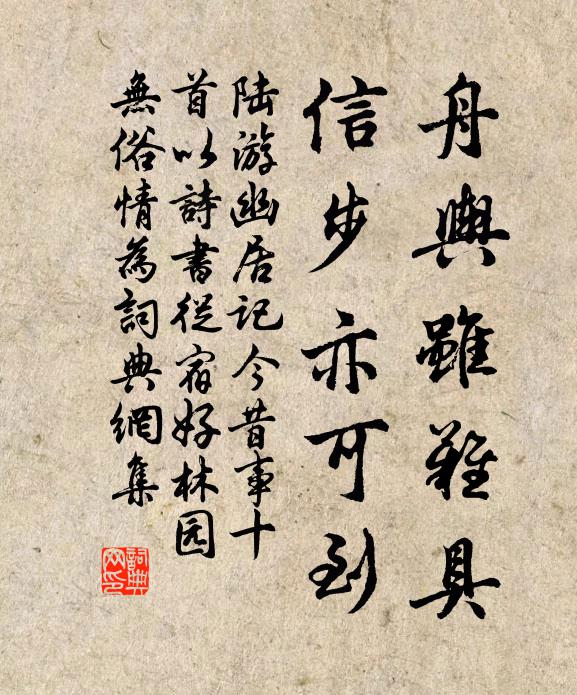 舟輿雖難具
信步亦可到
陆游幽居記今昔事十
首以詩書從宿好林园
無俗情為詞典網集
詞典网印